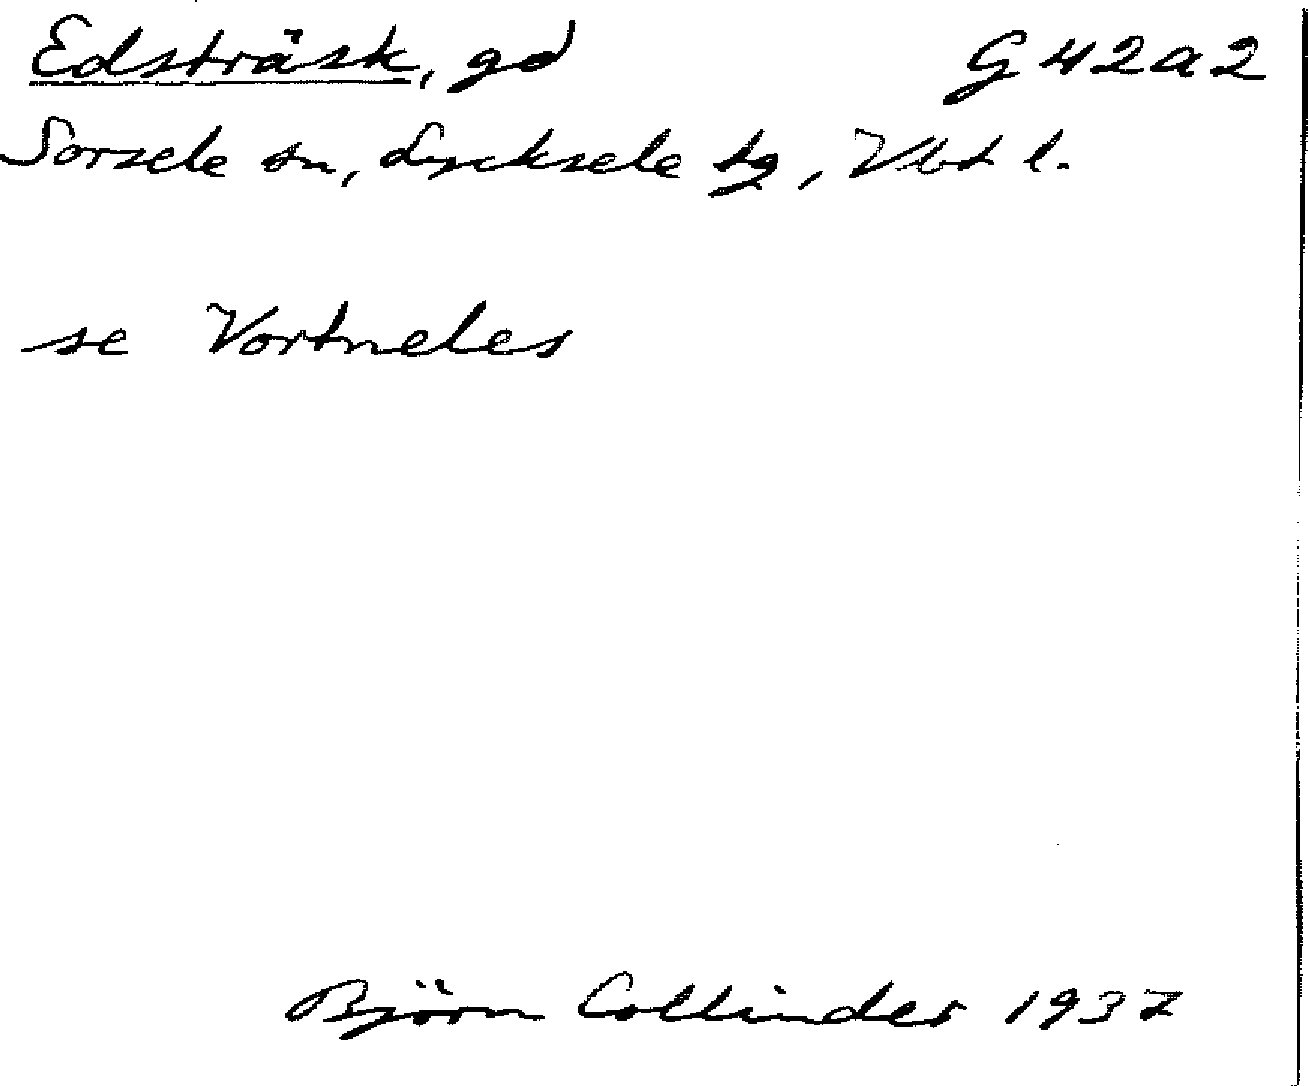 Edsträsk, gd G 42 a 2
Sorsele sn, Lycksele tg, Vbt l.
se Vortneles
Björn Collinder 1937